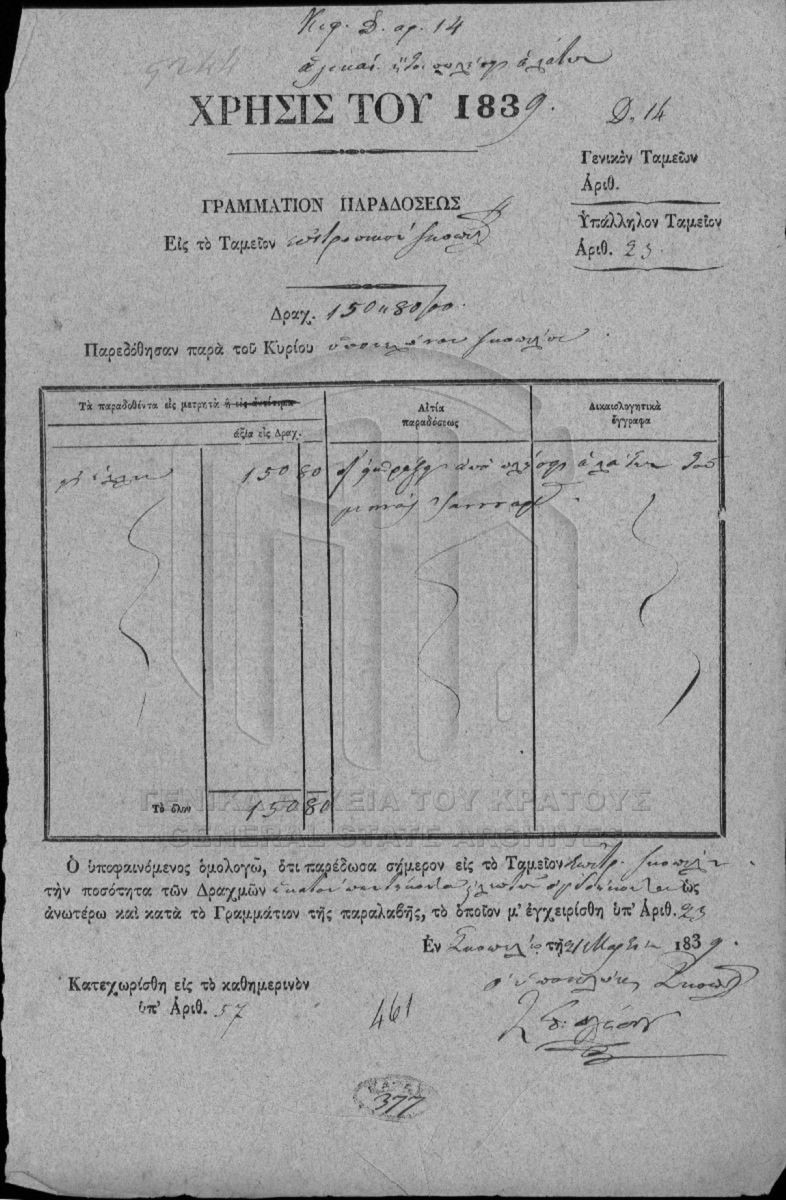 Κεφ. Δ. αρ. 14
ἁλικαί ἤτοι πωλήσεως ἁλάτων
ΧΡΗΣΙΣ ΤΟΥ 1839.
Δ. 14
Γενικὸν Ταμεῖον
Ἀριθ.
ΓΡΑΜΜΑΤΙΟΝ ΠΑΡΑΔΟΣΕΩΣ
Ὑπάλληλον Ταμεῖον
Ἀριθ. 23.
Εἰς τὸ Ταμεῖον Σκοπέλου
Δραχ. 150 80/00.
Παρεδόθησαν παρὰ τοῦ Κυρίου ὑποτελώνου Σκοπέλου
Τὰ παραδοθέντα εἰς μετρητὰ ἢ εἰς ἀντίτιμα
ἀξία εἰς Δραχ.
Αἰτία
παραδόσεως
Δικαιολογητικὰ
ἔγγραφα
150 80
εἰσπράξεως ἀπό πωλήσεως ἁλάτων τοῦ
μηνός Ἰανουαρίου
Τὸ ὅλον 150 80
ΓΕΝΙΚΑ ΑΡΧΕΙΑ ΤΟΥ ΚΡΑΤΟΥΣ
GENERAL STATE ARCHIVES
Ὁ ὑποφαινόμενος ὁμολογῶ, ὅτι παρέδωσα σήμερον εἰς τὸ Ταμεῖον Σκοπέλου
τὴν ποσότητα τῶν Δραχμῶν ἑκατόν πεντήκοντα λεπτῶν ὀγδοήκοντα ὡς
ἀνωτέρω καὶ κατὰ τὸ Γραμμάτιον τῆς παραλαβῆς, τὸ ὁποῖον μ' ἐγχειρίσθη ὑπ' Ἀριθ. 23
Ἐν Σκοπέλῳ τῇ 21 Μαρτίου 1839.
Κατεχωρίσθη εἰς τὸ καθημερινὸν
ὑπ' Ἀριθ. 57
ὁ ὑποτελώνης Σκοπέλου
461
377